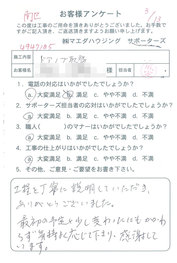 お客様アンケート
この度は工事のご用命を頂きありがとうございました。お手数で
すがご記入頂き、ご返送頂きますようお願い申し上げます。
㈱マエダハウジング サポーターズ
施工内容
お名前 様 担当者
1. 電話の対応はいかがでしたでしょうか？
大変満足 満足 c. やや不満 d. 不満
2. サポーターズ担当者の応対はいかがでしたでしょうか？
大変満足 b. 満足 c. やや不満 d. 不満
3. 職人( )のマナーはいかがでしたでしょうか？
大変満足 b. 満足 c. やや不満 d. 不満
4. 工事の仕上がりはいかがでしたでしょうか？
大変満足 b. 満足 c. やや不満 d. 不満
5. その他、ご意見・ご要望をお書き下さい。
工程を丁寧に説明していただき、
ありがとうございました。
最初の予定と少し変わったにもかかわ
らず気持ち応じて下さり、感謝して
います。